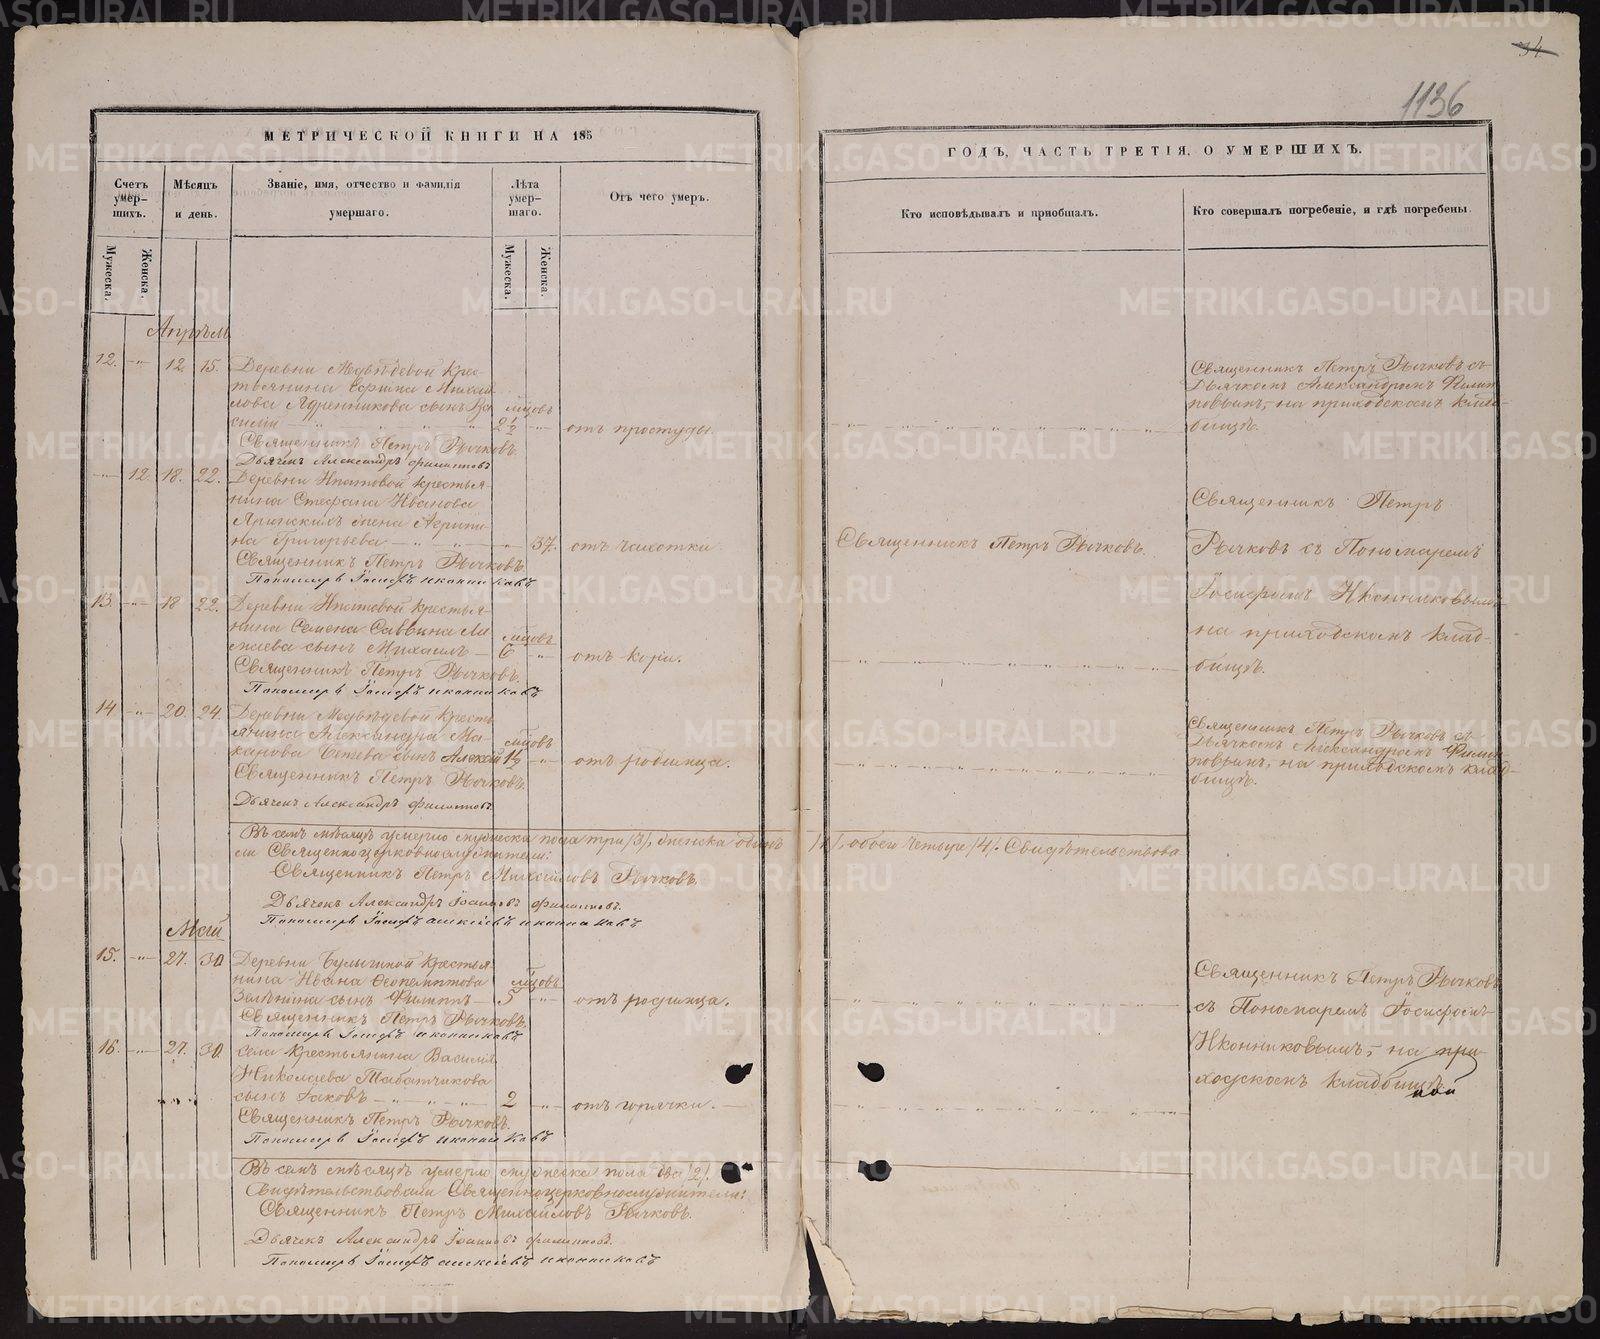 34
1136
МЕТРИЧЕСКОЙ КНИГИ НА 185
ГОДЪ, ЧАСТЬ ТРЕТІЯ, О УМЕРШИХЪ.
Счетъ умер-шихъ.
Мѣсяцъ и день.
Званіе, имя, отчество и фамилія умершаго.
Лѣта умер-шаго.
Отъ чего умеръ.
Кто исповѣдывалъ и пріобщалъ.
Кто совершалъ погребеніе, и гдѣ погребены.
Мужеска.
Женска.
Мужеска.
Женска.
Апрѣль
12. 12 15. Деревни Медвѣдевой Крес-
тьянина Михай-
лова Ядренникова сынъ Ва мѣсяцовъ
силій 2½ отъ простуды.
Священникъ Петръ Рычковъ.
Дьячек Александръ Филипповъ
Священникъ Петръ Рычковъ съ
Дьячкомъ Александромъ Филип
повымъ, на приходскомъ клад-
бищѣ.
12. 18. 22. Деревни Ипатовой крестья-
нина Стефана Иванова
жена Агрипи-
на Григорьева 37. отъ чахотки.
Священникъ Петръ Рычковъ.
Пономарь Іосифъ Иконниковъ
Священникъ Петръ Рычковъ.
Священникъ Петръ
Рычковъ съ Пономаремъ
Іосифомъ Иконниковымъ
на приходскомъ клад-
бищѣ.
13. 18 22. Деревни Ипатовой крестья-
нина Семена Саввина
сынъ Михаилъ 6 отъ кори.
Священникъ Петръ Рычковъ.
Пономарь Іосифъ Иконниковъ
14 20. 24. Деревни Медвѣдевой Кресть
янина Александра Ма-
карова сынъ Алексѣй 1½ отъ родимца.
Священникъ Петръ Рычковъ.
Дьячек Александръ Филипповъ
Священникъ Петръ Рычковъ съ
Дьячкомъ Александромъ Филип
повымъ, на приходскомъ клад-
бищѣ.
Въ семъ мѣсяцѣ умерло мужеска пола три /3/, женска одинъ /1/, обоего четыре /4/. Свидѣтельствова
ли Священноцерковнослужители:
Священникъ Петръ Михайловъ Рычковъ.
Дьячек Александръ Іоанновъ Филипповъ.
Пономарь Іосифъ Алексѣевъ Иконниковъ
Май
15. 27. 30 Деревни Булыгиной Крестья-
нина Ивана Феопемптова мѣсяцовъ
сынъ Филиппъ 5 отъ родимца.
Священникъ Петръ Рычковъ.
Пономарь Іосифъ Иконниковъ
Священникъ Петръ Рычковъ
съ Пономаремъ Іосифомъ
Иконниковымъ, на при
ходскомъ кладбищѣ
16. 27. 30. села Крестьянина Василія
Николаева Табатчикова
сынъ Іаковъ 2 отъ горячки.
Священникъ Петръ Рычковъ.
Пономарь Іосифъ Иконниковъ
Въ семъ мѣсяцѣ умерло мужеска пола два /2/.
Свидѣтельствовали Священноцерковнослужители:
Священникъ Петръ Михайловъ Рычковъ.
Дьячек Александръ Іоанновъ Филипповъ.
Пономарь Іосифъ Алексѣевъ Иконниковъ
METRIKI.GASO-URAL.RU